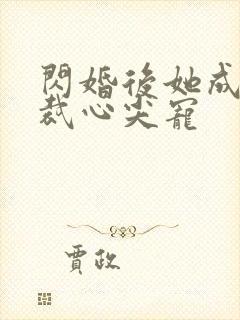 閃婚後她成
裁心尖寵
賈政